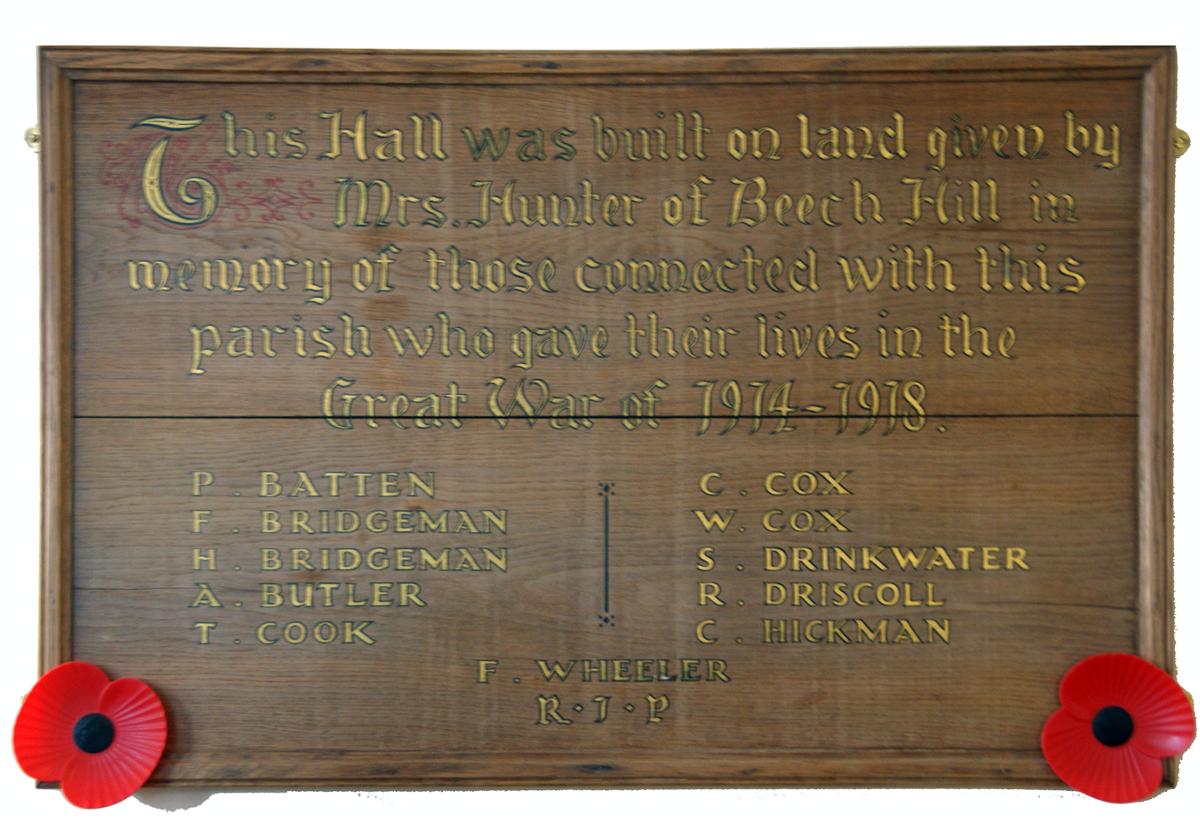 This Hall was built on land given by
Mrs. Hunter of Beech Hill in
memory of those connected with this
parish who gave their lives in the
Great War of 1914-1918.
P. BATTEN
F. BRIDGEMAN
H. BRIDGEMAN
A. BUTLER
T. COOK
C. COX
W. COX
S. DRINKWATER
R. DRISCOLL
C. HICKMAN
F. WHEELER
R·I·P